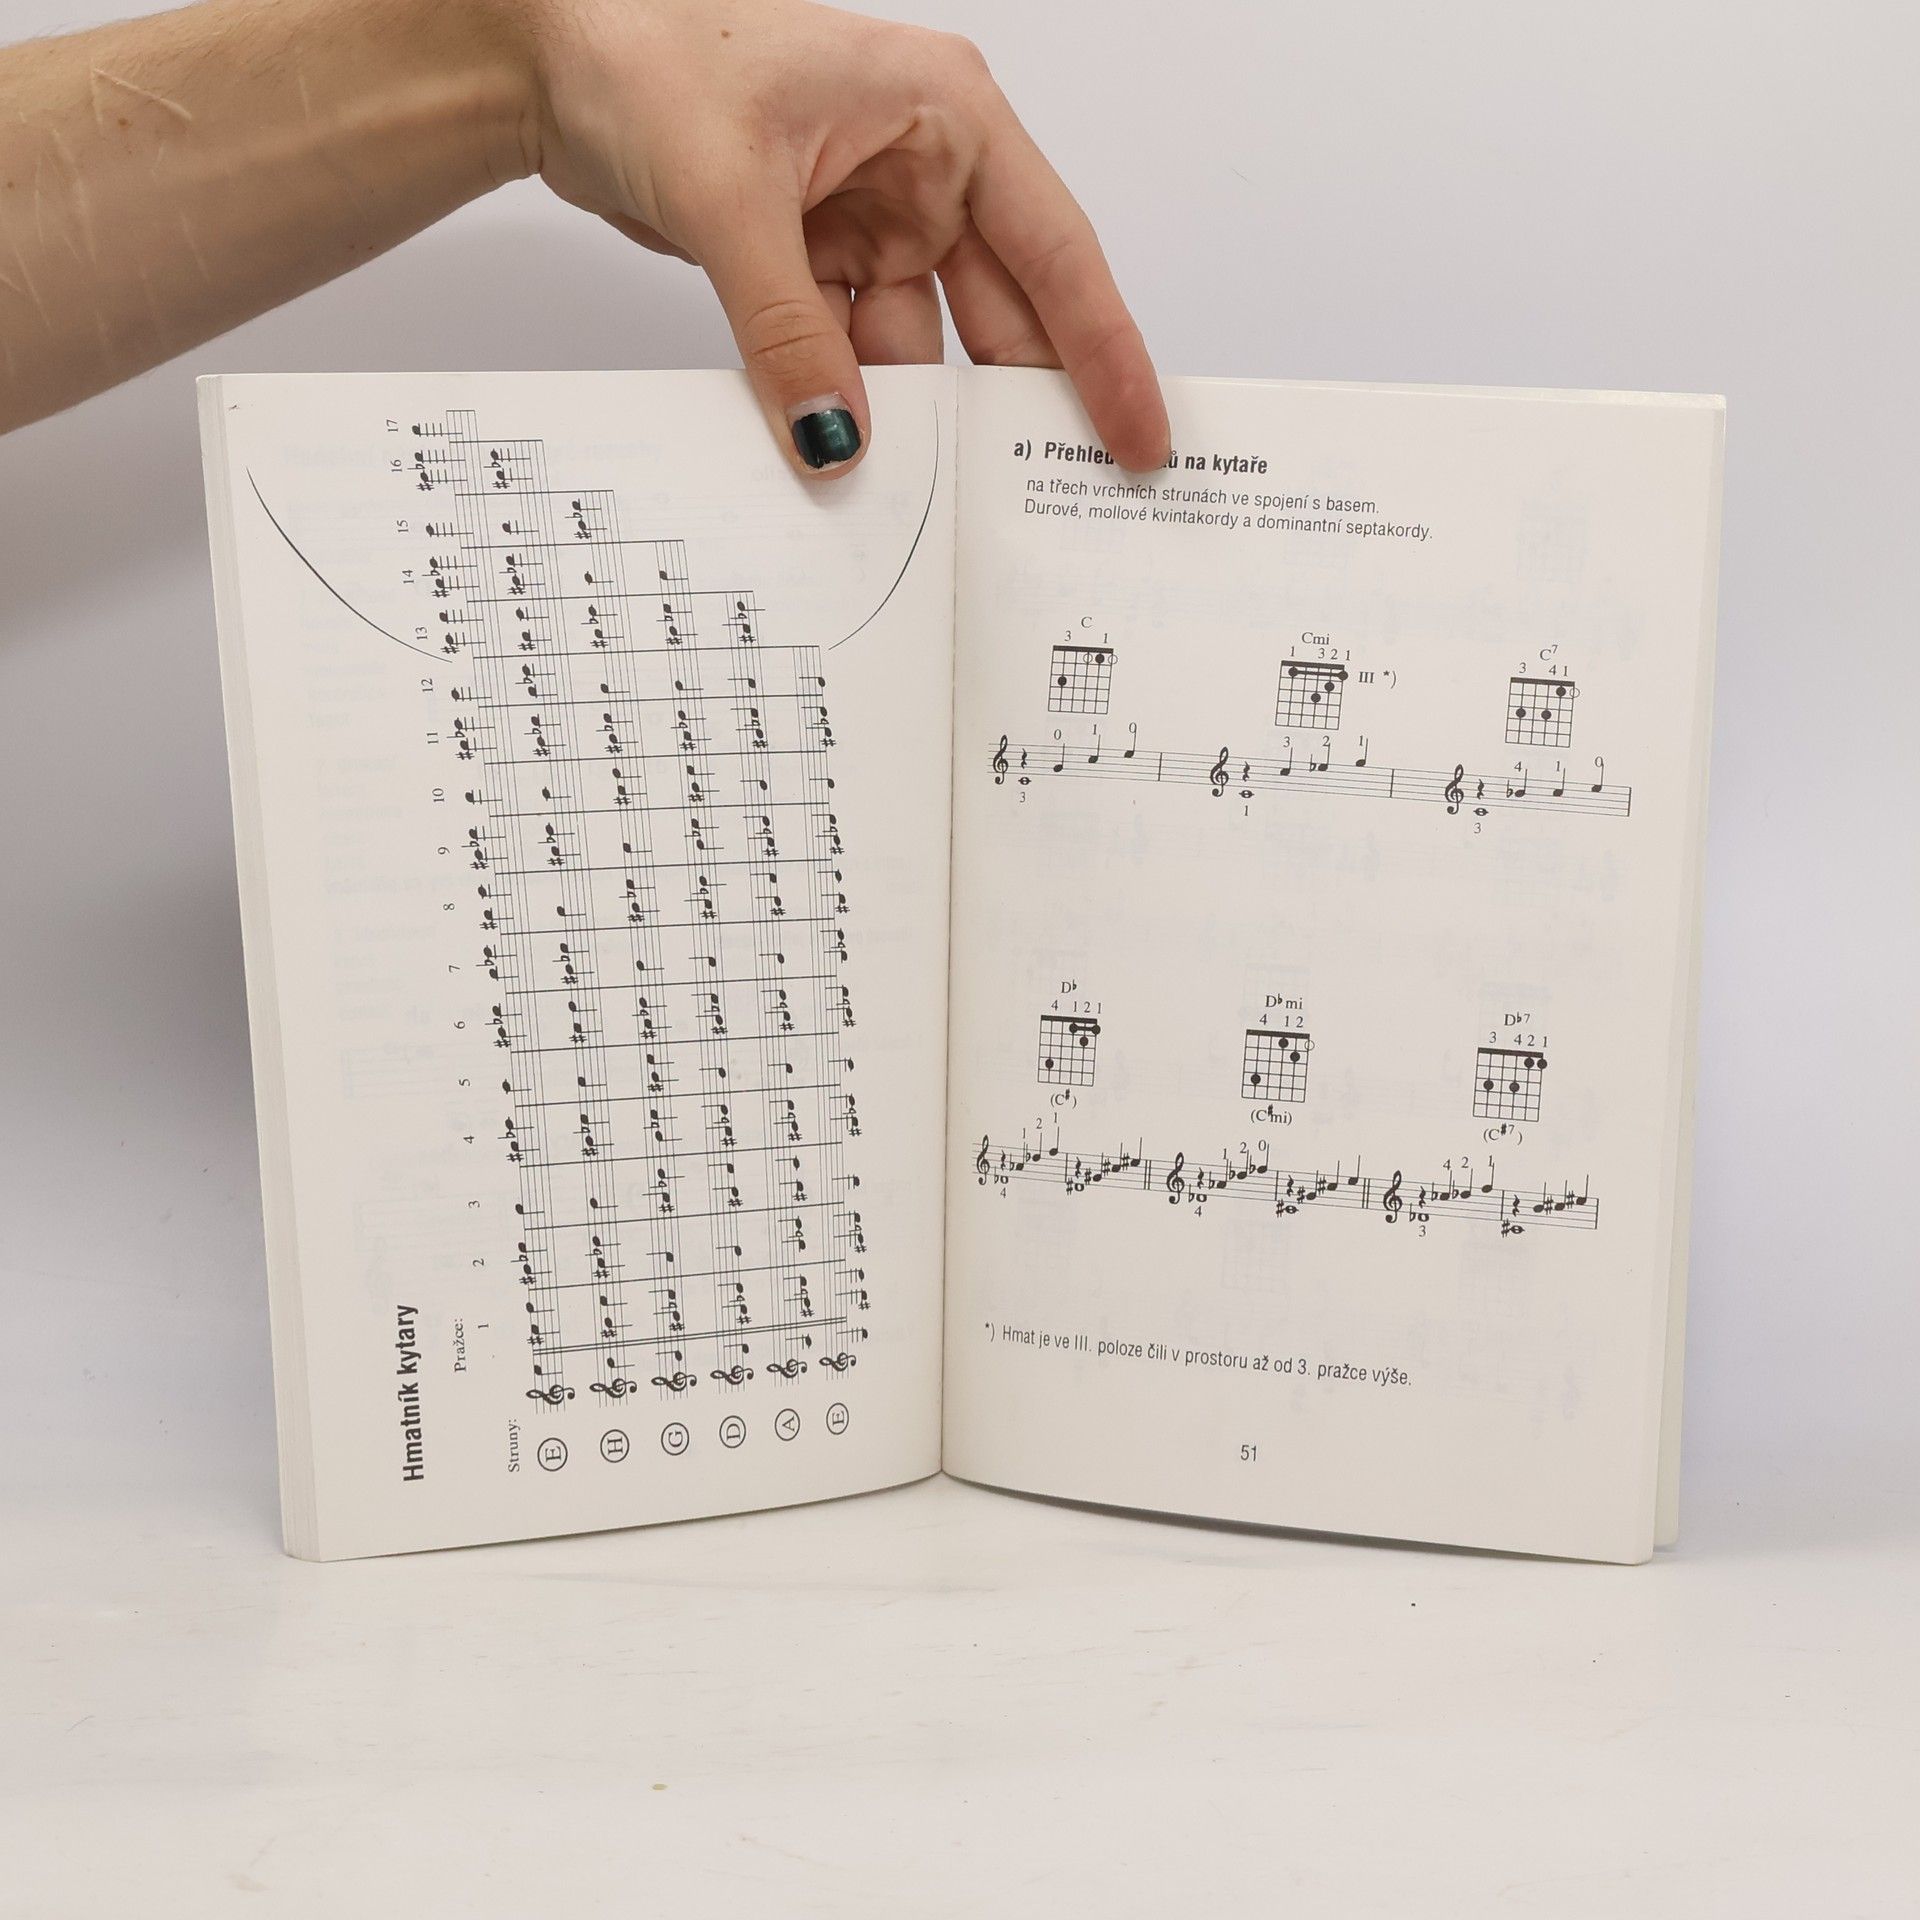 Hmatník kytary
Pražce: 1 2 3 4 5 6 7 8 9 10 11 12 13 14 15 16 17
Struny:
E
H
G
D
A
E
a) na kytaře
na třech vrchních strunách ve spojení s basem.
Durové, mollové kvintakordy a dominantní septakordy.
C Cmi C7
3 1 1 3 2 1 3 4 1
III *)
0 1 0 3 2 1 4 1 0
3 1 3
D♭ D♭mi D♭7
4 1 2 1 4 1 2 3 4 2 1
(C#) (C#mi) (C#7)
1 2 1 1 2 0 4 2 1
4 4 3
*) Hmat je ve III. poloze čili v prostoru až od 3. pražce výše.
51